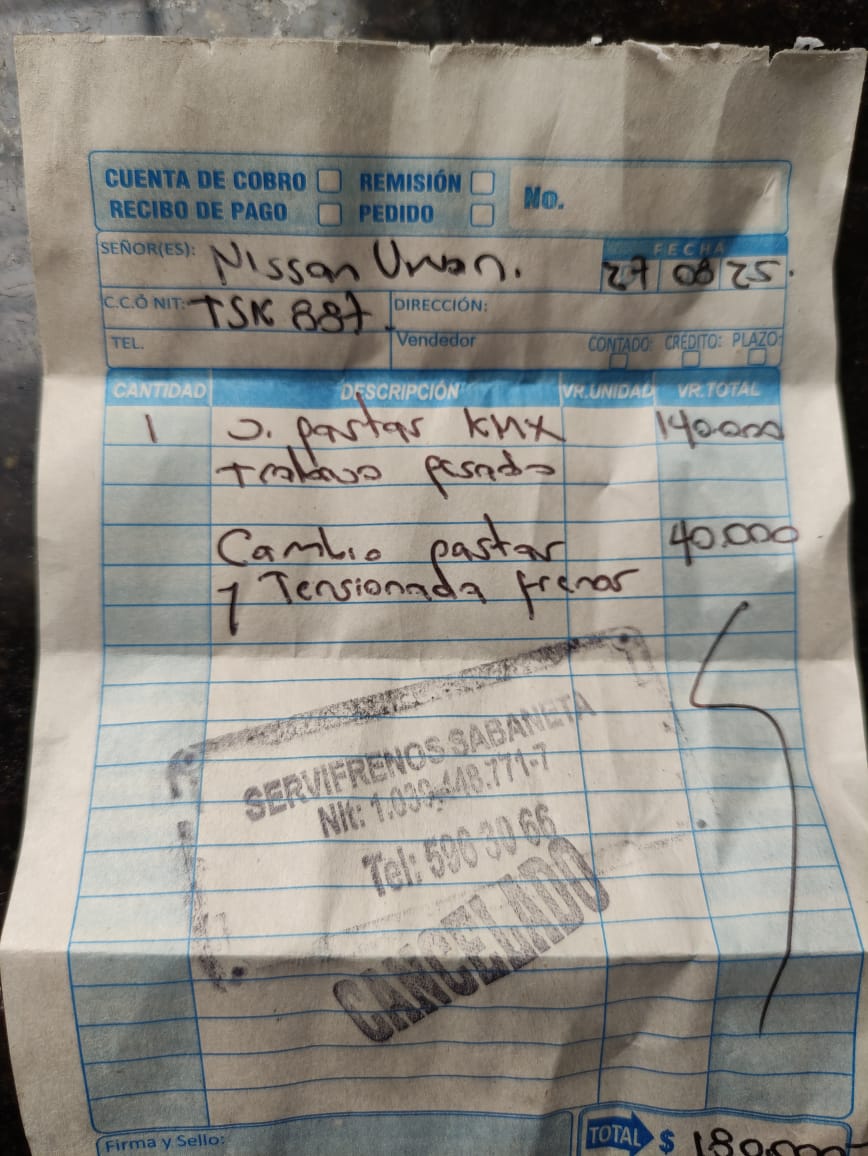 CUENTA DE COBRO REMISIÓN No.
RECIBO DE PAGO PEDIDO
SEÑOR(ES): Nissan Urvan. FECHA
27 08 25.
C.C.Ó NIT: TSK 887 DIRECCIÓN:
TEL. Vendedor CONTADO: CRÉDITO: PLAZO:
CANTIDAD DESCRIPCIÓN VR.UNIDAD VR.TOTAL
1 J. pastas 140.000
trabajo pesado
Cambio pastas 40.000
y Tensionada frenos
SERVIFRENOS SABANETA
Nit: 1.039.448.771-7
Tel: 590 30 66
CANCELADO
Firma y Sello: TOTAL $ 180.000